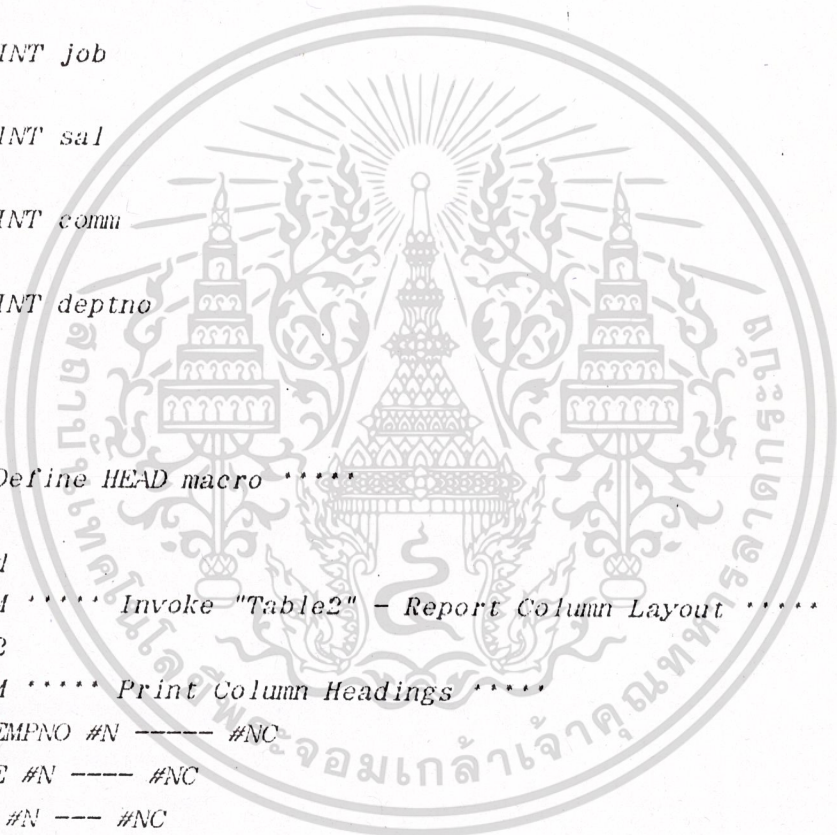 INT job
INT sal
INT comm
INT deptno
Define HEAD macro *****
***** Invoke "Table2" - Report Column Layout *****
2
***** Print Column Headings *****
EMPNO #N ----- #NC
E #N ---- #NC
#N --- #NC
สถาบันเทคโนโลยีพระจอมเกล้าเจ้าคุณทหารลาดกระบัง